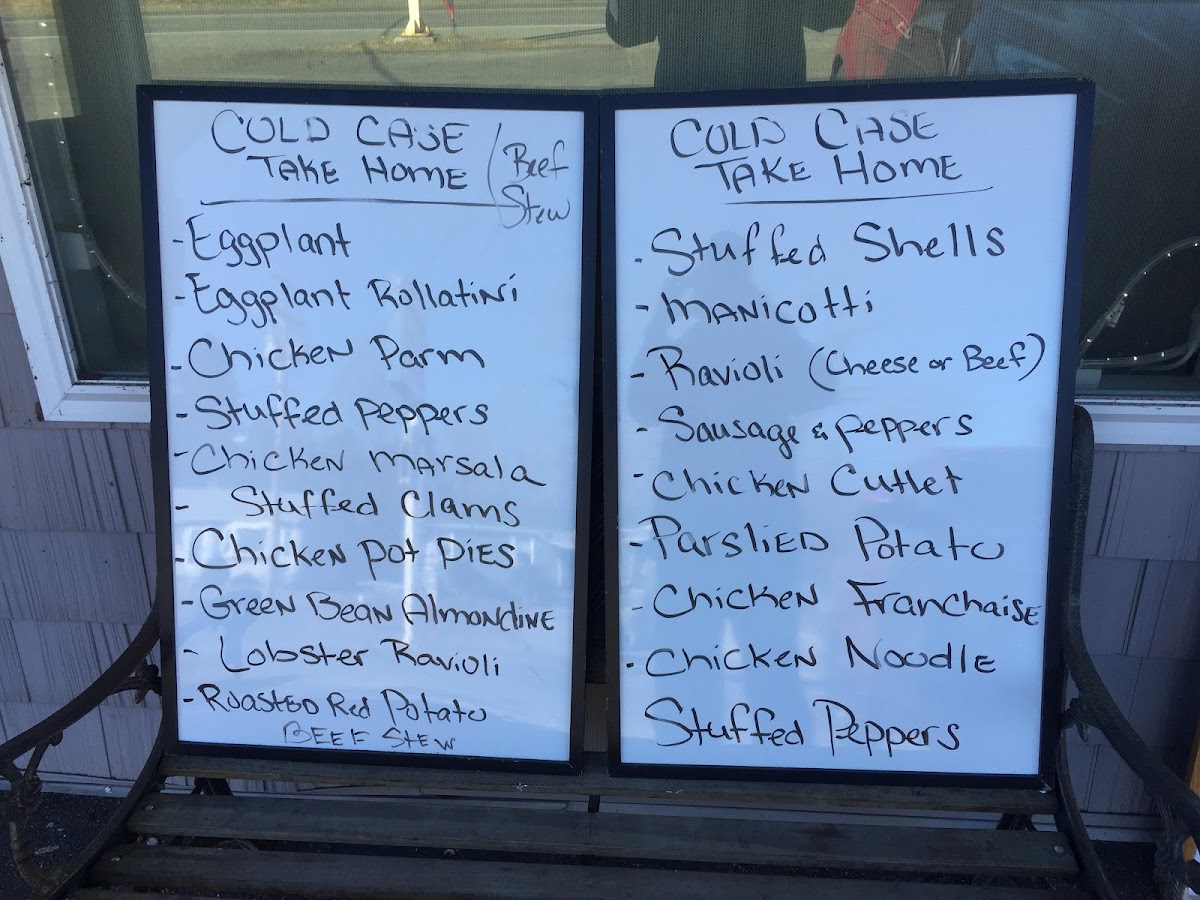 COLD CASE
TAKE HOME
/ Beef
Stew
- Eggplant
- Eggplant Rollatini
- Chicken Parm
- Stuffed Peppers
- Chicken Marsala
- Stuffed Clams
- Chicken Pot Pies
- Green Bean Almondine
- Lobster Ravioli
- Roasted Red Potato
BEEF STEW
COLD CASE
TAKE HOME
- Stuffed Shells
- Manicotti
- Ravioli (Cheese or Beef)
- Sausage & Peppers
- Chicken Cutlet
- Parslied Potato
- Chicken Franchaise
- Chicken Noodle
Stuffed Peppers